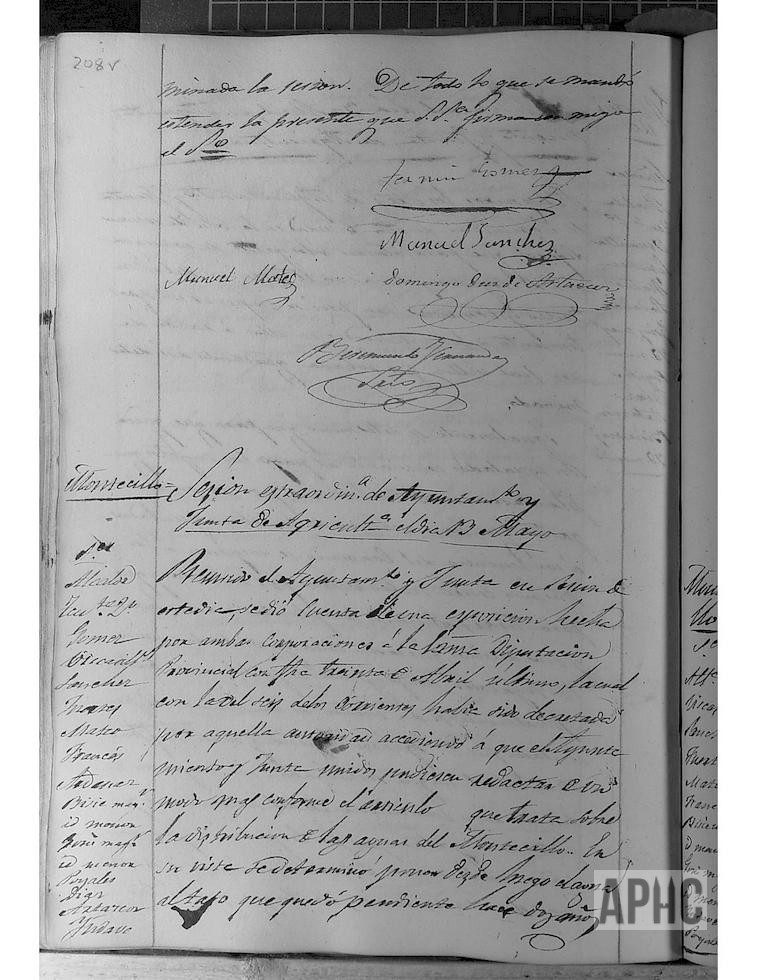 208v
minada la sesion. De todo lo que se mandó
estender la presente que S.S.ª firma con migo
el S.º
Fermin Gomez
Manuel Sanchez
Manuel Mateo
Domingo
Artazcoz
Bermundo
Srio
Montecillo = Sesion estraordin.ª de Ayuntam.to y
Junta de Agricult.ª el dia 13 Mayo
S.res
Alcalde
Gomez
Sanchez
Mateo
Francés
Andauer
Biñie may.r
id menor
id menor
Royales
Diaz
Artazcoz
Reunido el Ayuntam.to y Junta en sesion de
este dia, se dió cuenta de una esposicion hecha
por ambas corporaciones á la Exma Diputacion
Provincial con fha treinta de Abril último, la cual
con la del seis de los corrientes había sido decretada
por aquella autoridad accediendo á que el Ayunta
miento y Junta unidos pudiesen redactar de un
modo mas conforme el articulo que trata sobre
la distribucion de las aguas del Montecillo. En
su vista se determinó poner desde luego el agua
al tajo que quedó pendiente hace dos años
APHC